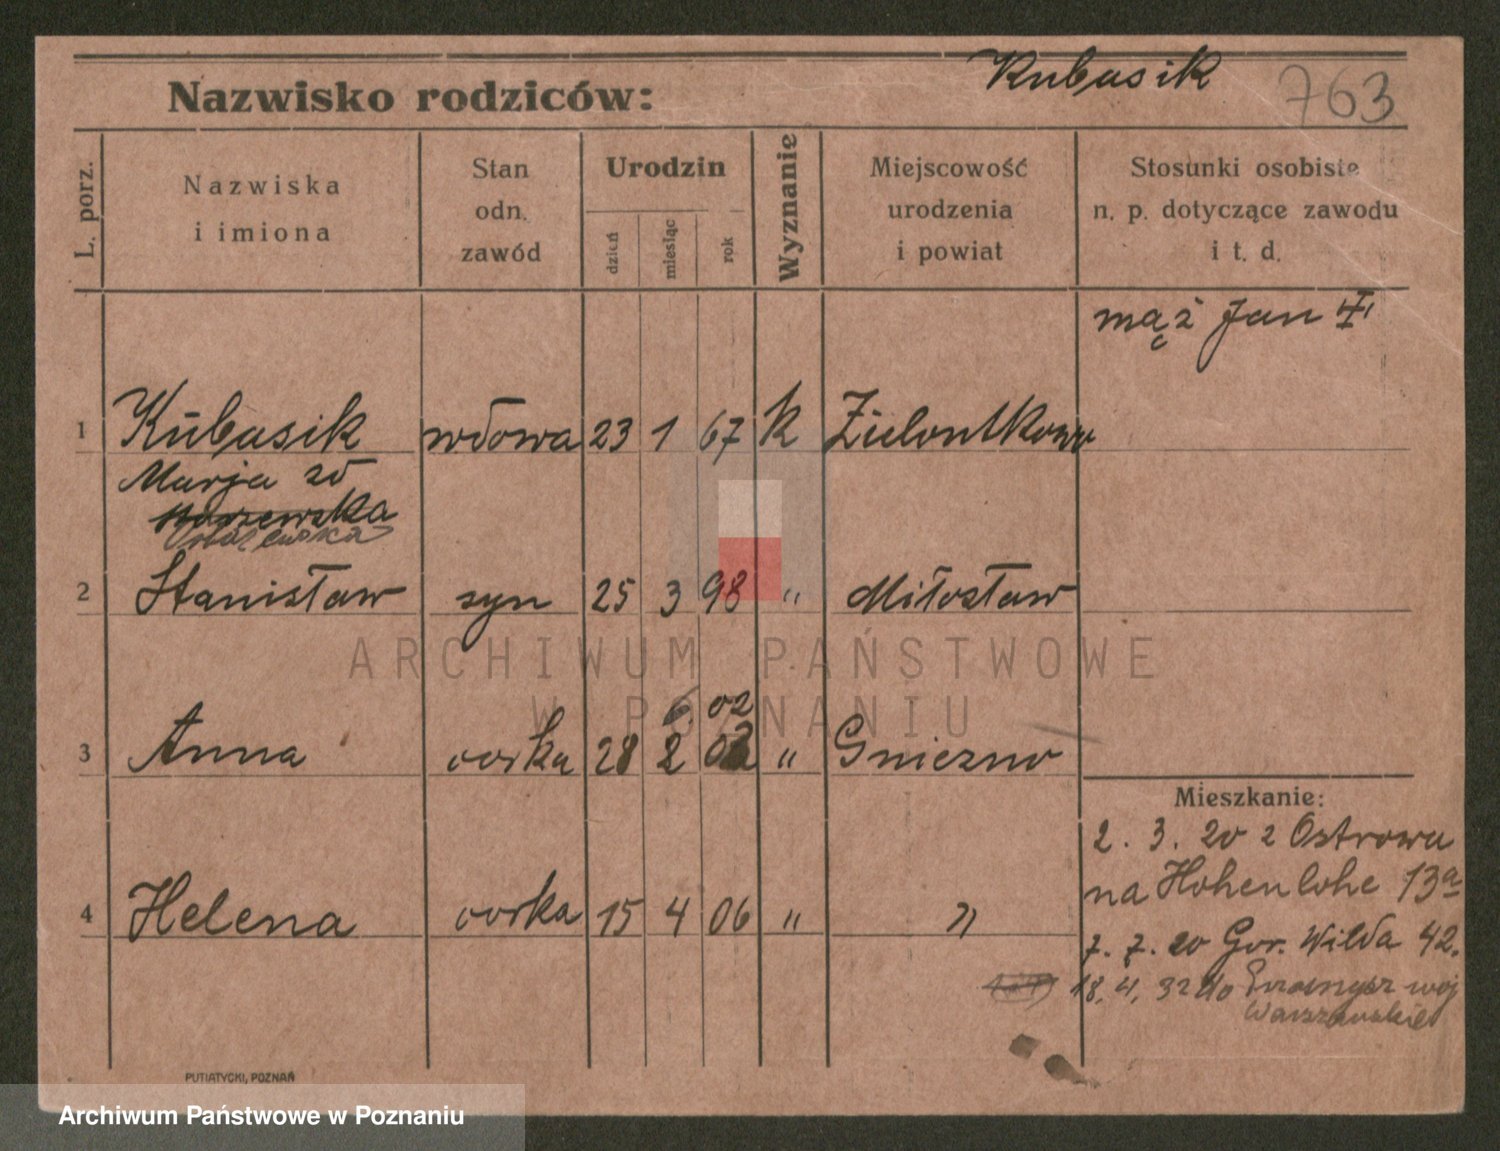 Nazwisko rodziców: Kubasik 763
L. porz.
Nazwiska
i imiona
Stan
odn.
zawód
Urodzin
dzień
miesiąc
rok
Wyznanie
Miejscowość
urodzenia
i powiat
Stosunki osobiste
n. p. dotyczące zawodu
i t. d.
mąż Jan
1 Kubasik wdowa 23 1 67 k
Marja zd
2 Stanisław syn 25 3 98 " Miłosław
ARCHIWUM PAŃSTWOWE
W POZNANIU
6 02
3 Anna córka 28 2 " Gniezno
Mieszkanie:
2. 3. 20 z Ostrowa
na Hohenlohe 13a
4 Helena córka 15 4 06 " "
7. 7. 20 Gór. Wilda 42.
18. 4. 32 do woj
Warszawskie
PUTIATYCKI, POZNAŃ
Archiwum Państwowe w Poznaniu